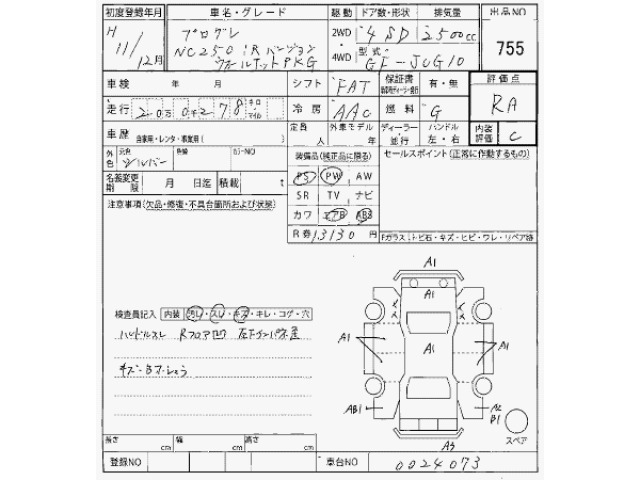 初度登録年月 車名・グレード 駆動 ドア数・形状 排気量 出品NO
H 11/12月 プログレ 2WD 4 SD 2500cc 755
NC250 iRバージョン 4WD 型式 GF-JCG10
ウォルナットPKG
車検 年 月 シフト FAT 保証書 有・無 評価点
走行 キロ マイル 冷房 AAC 燃料 G RA
車歴 自家用・レンタ・事業用( ) 定員 人 外車モデル 年 ディーラー 並行 ハンドル 左・右 内装評価 C
外色 元色 シルバー 色替 カラーNO 装備品(純正品に限る) セールスポイント(正常に作動するもの)
名義変更期限 月 日迄 積載 t PS PW AW
SR TV ナビ
注意事項(欠品・修復・不具合箇所および状態) カワ エアB ABS
R券 13130 円 Fガラス、トビ石・キズ・ヒビ・ワレ・リペア跡
A1
A1
検査員記入 内装 汚レ・スレ・キズ・キレ・コゲ・穴
ハンドルスレ Rフロア凹
A1 A1 A1
AB1 A2
B1
スペア
長さ cm 幅 cm 高さ cm A3
登録NO 車台NO 0024073